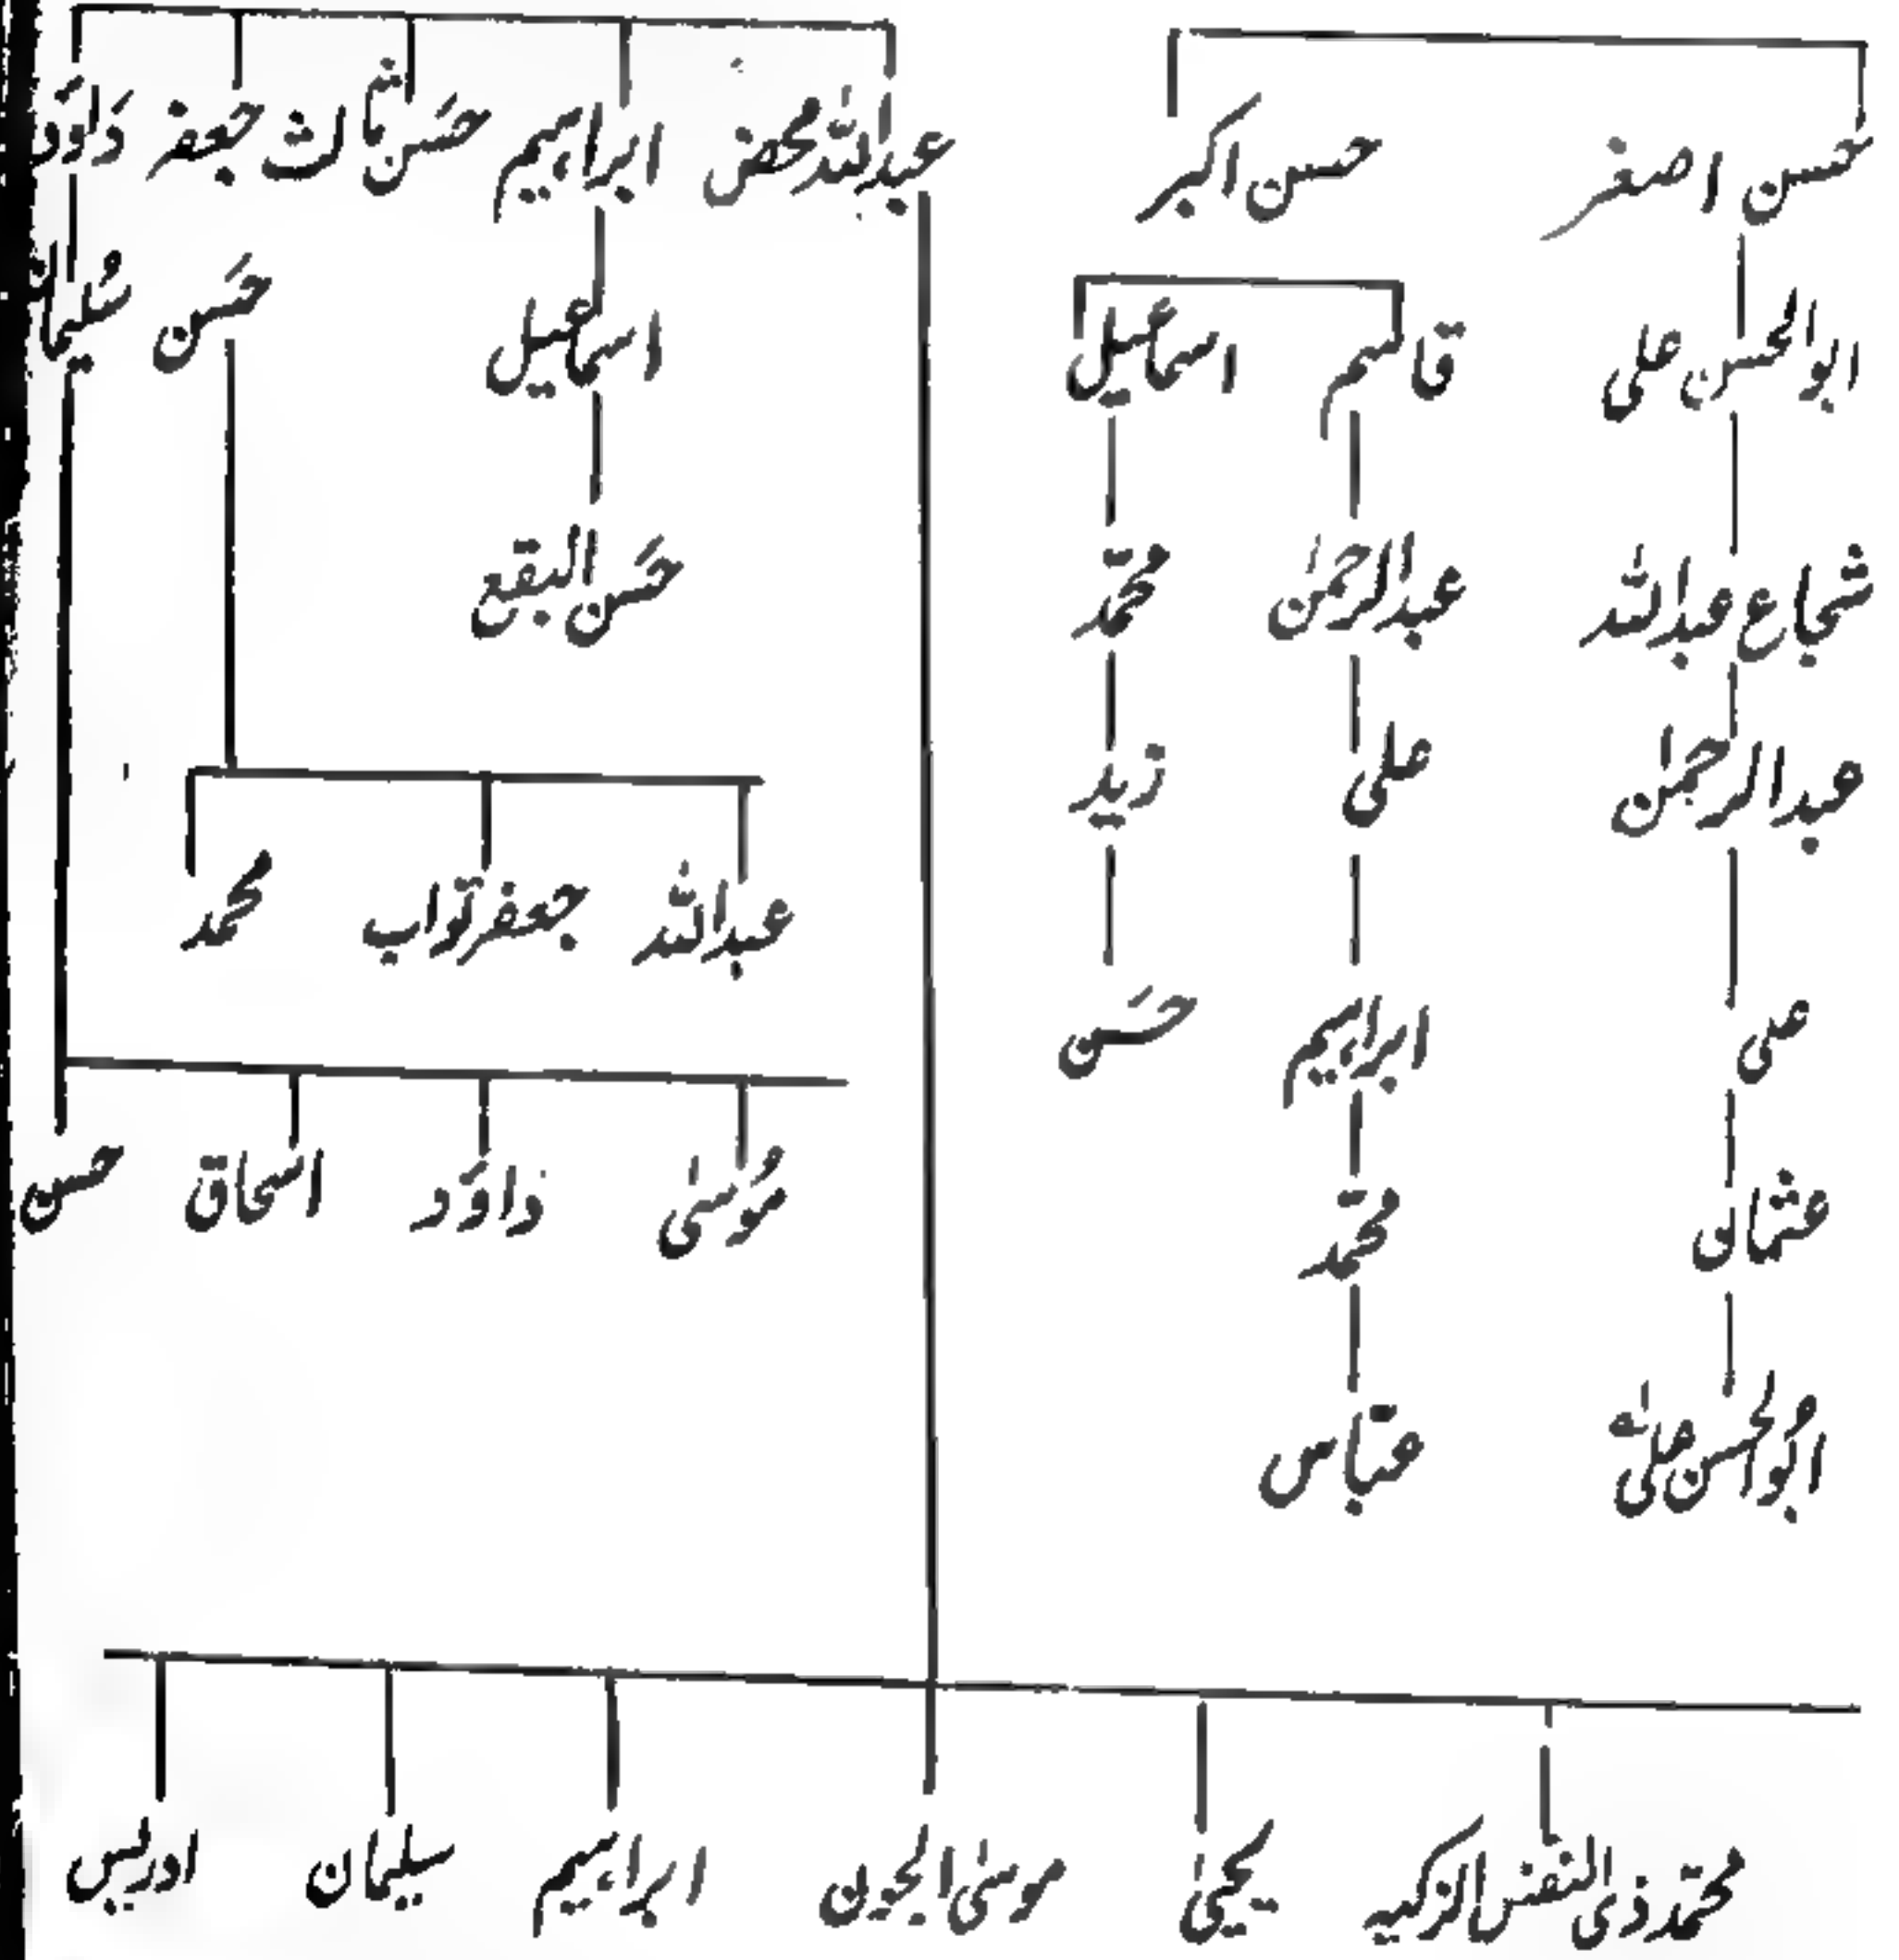 حسن اصغر حسن اکبر عبداللہ محض ابراہیم حسن ثالث جعفر داؤد
ابوالحسن علی قاسم اسماعیل اسماعیل حسن سلیمان
شجاع عبداللہ عبدالرحمٰن محمّد حسن البقع
عبدالرحمٰن علی زید
عبداللہ جعفر تواب محمد
علی ابراہیم حسن
عثمان محمّد موسٰی داؤد اسحاق حسن
ابوالحسن علی عبّاس
محمّد ذی النفس الزکیہ یحییٰ موسیٰ الجون ابراہیم سلیمان ادریس